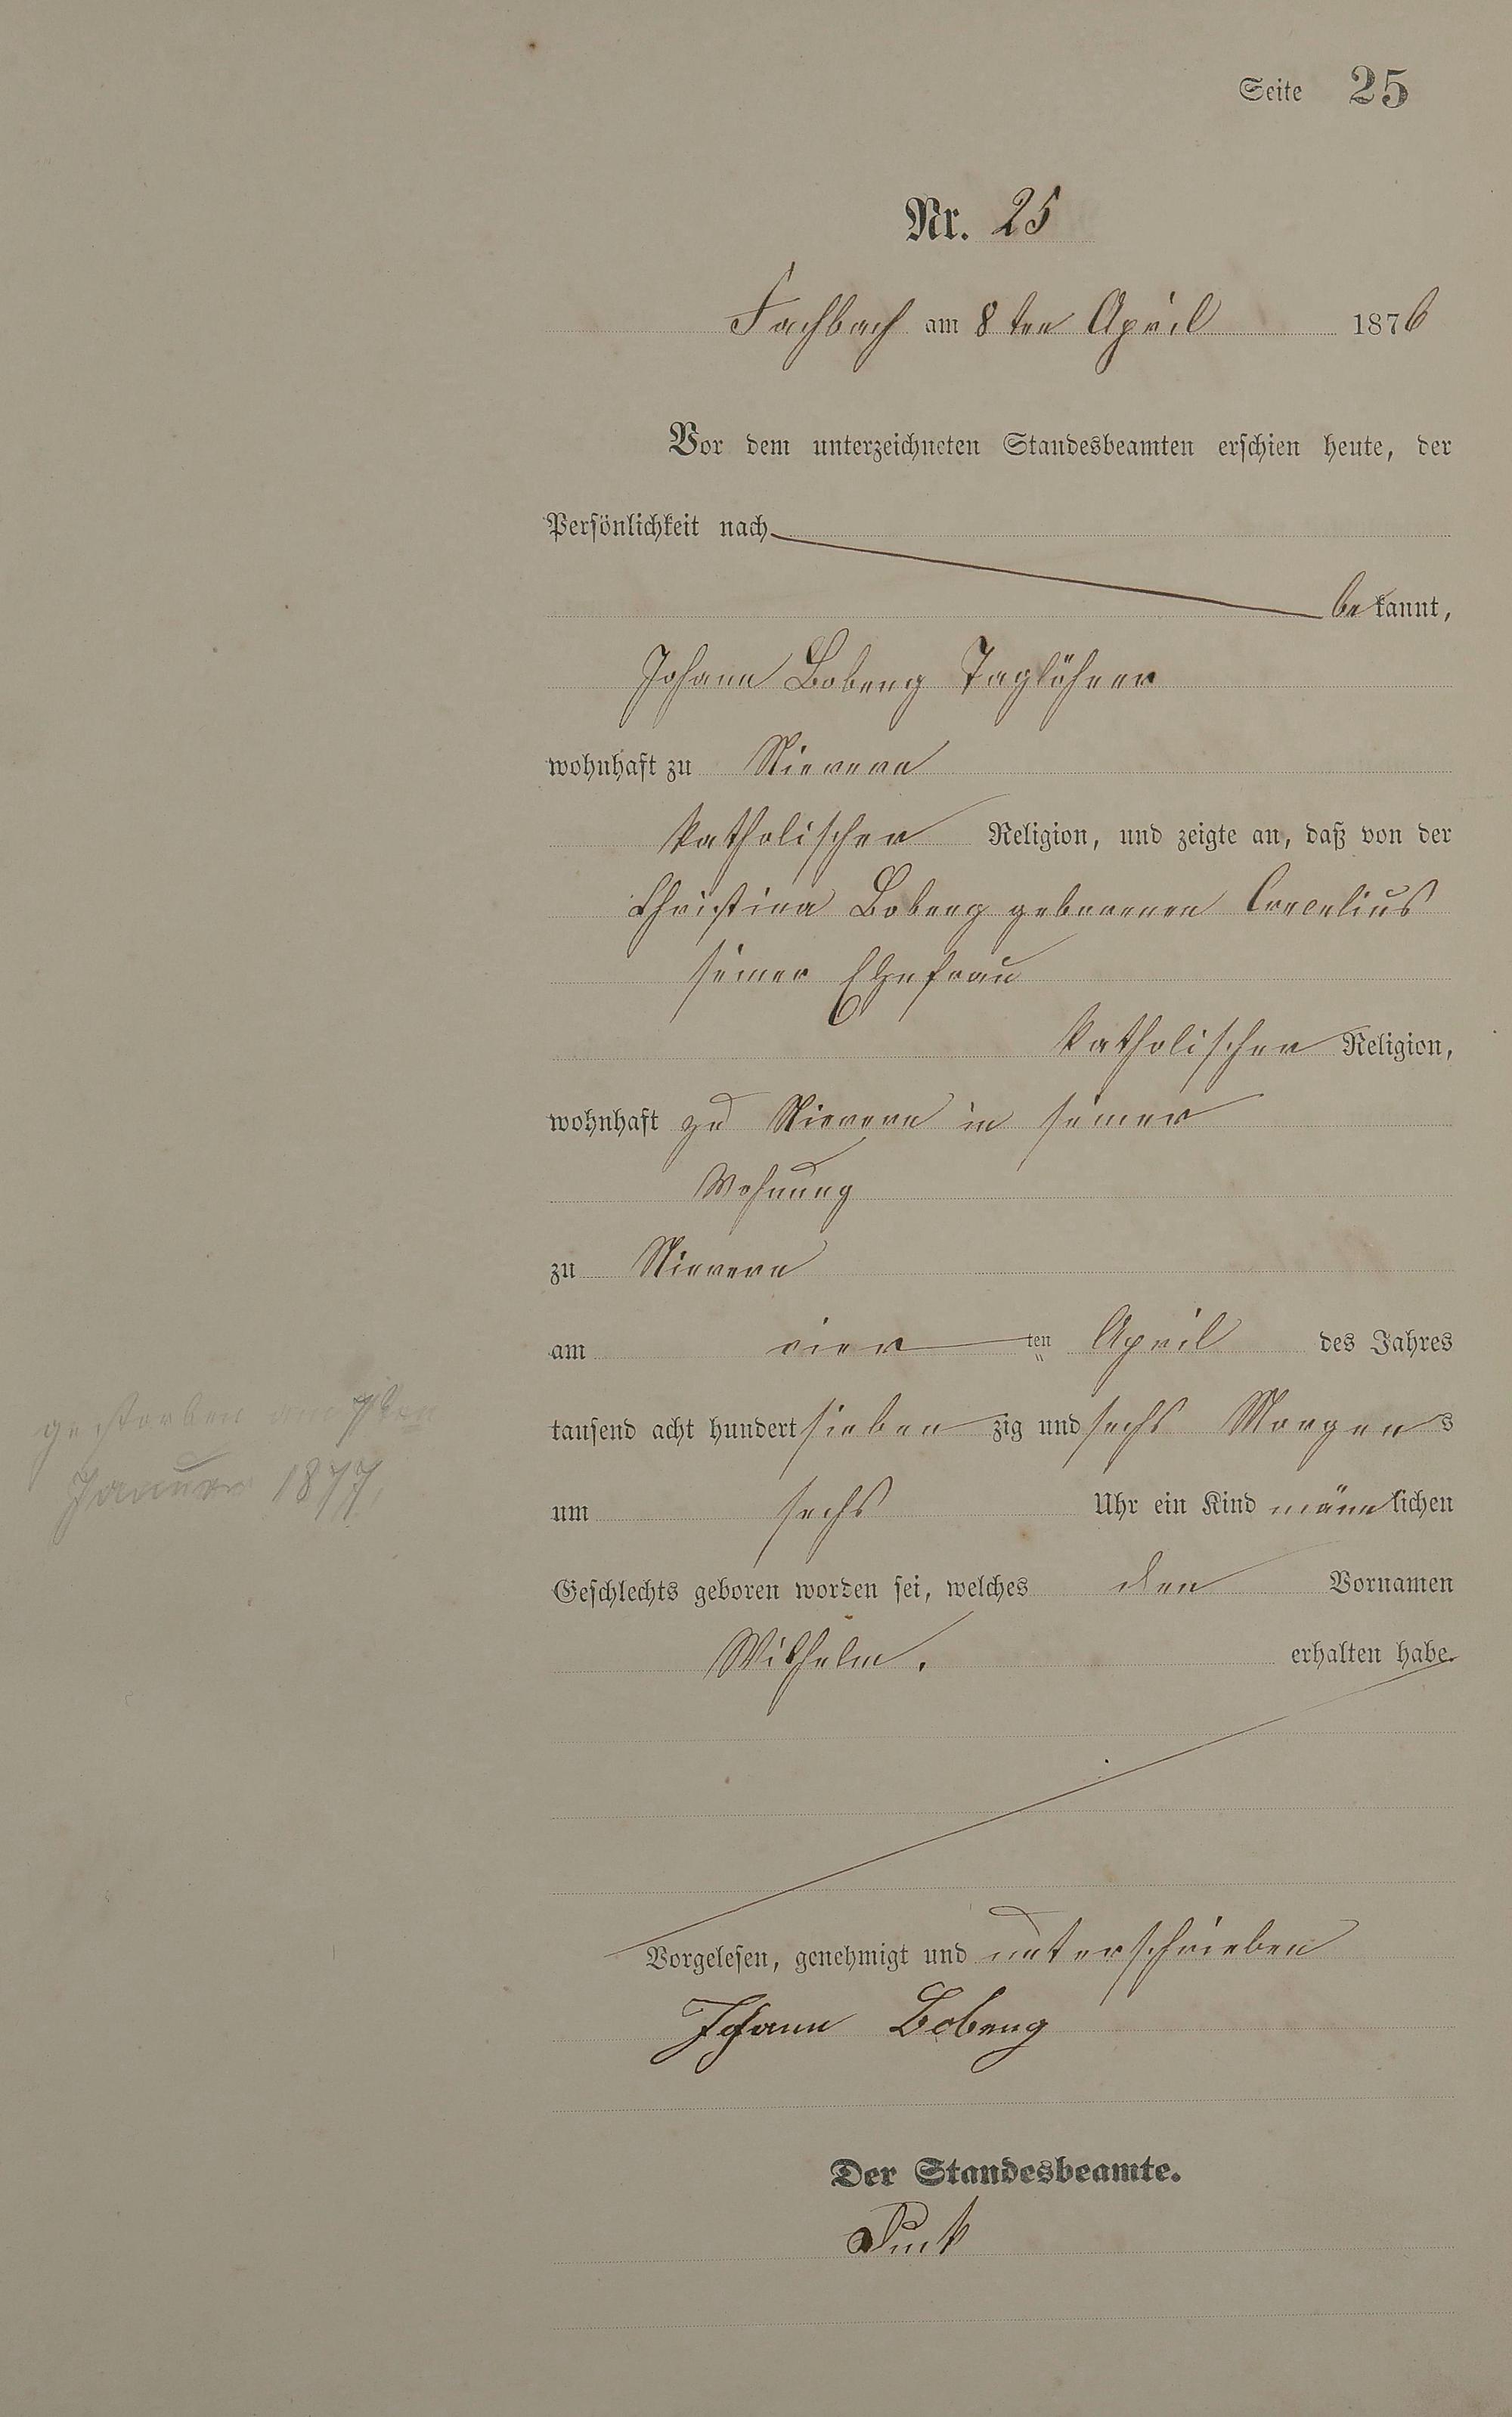 Seite 25
Nr. 25
Fachbach am 8ten April 1876
Vor dem unterzeichneten Standesbeamten erschien heute, der
Persönlichkeit nach
bekannt,
Johann Bobeng Taglöhner
wohnhaft zu Nievern
katholischer Religion, und zeigte an, daß von der
Christina Bobeng geborenen Cornelius
seiner Ehefrau
katholischer Religion,
wohnhaft zu Nievern in seiner
Wohnung
zu Nievern
am vier ten April des Jahres
tausend acht hundert siebenzig und sechs Morgens
um sechs Uhr ein Kind männlichen
Geschlechts geboren worden sei, welches den Vornamen
Wilhelm. erhalten habe.
gestorben am 7ten
Januar 1877,
Vorgelesen, genehmigt und unterschrieben
Johann Bobeng
Der Standesbeamte.